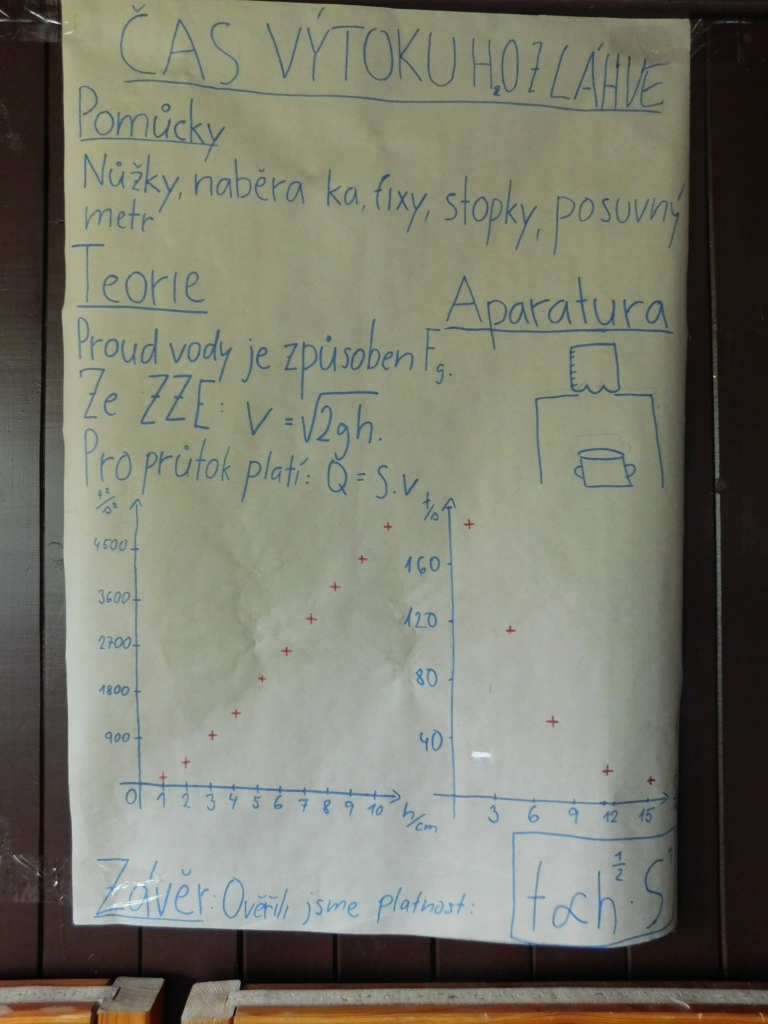 ČAS VÝTOKU H₂O Z LÁHVE
Pomůcky
Nůžky, naběra ka, fixy, stopky, posuvný
metr
Teorie
Aparatura
Proud vody je způsoben Fg.
Ze ZZE: v = √2gh.
Pro průtok platí: Q = S.v
t²/s²
4500
3600
2700
1800
900
0 1 2 3 4 5 6 7 8 9 10 h/cm
t/s
160
120
80
40
3 6 9 12 15
Závěr: Ověřili jsme platnost:
t∝h^½·S